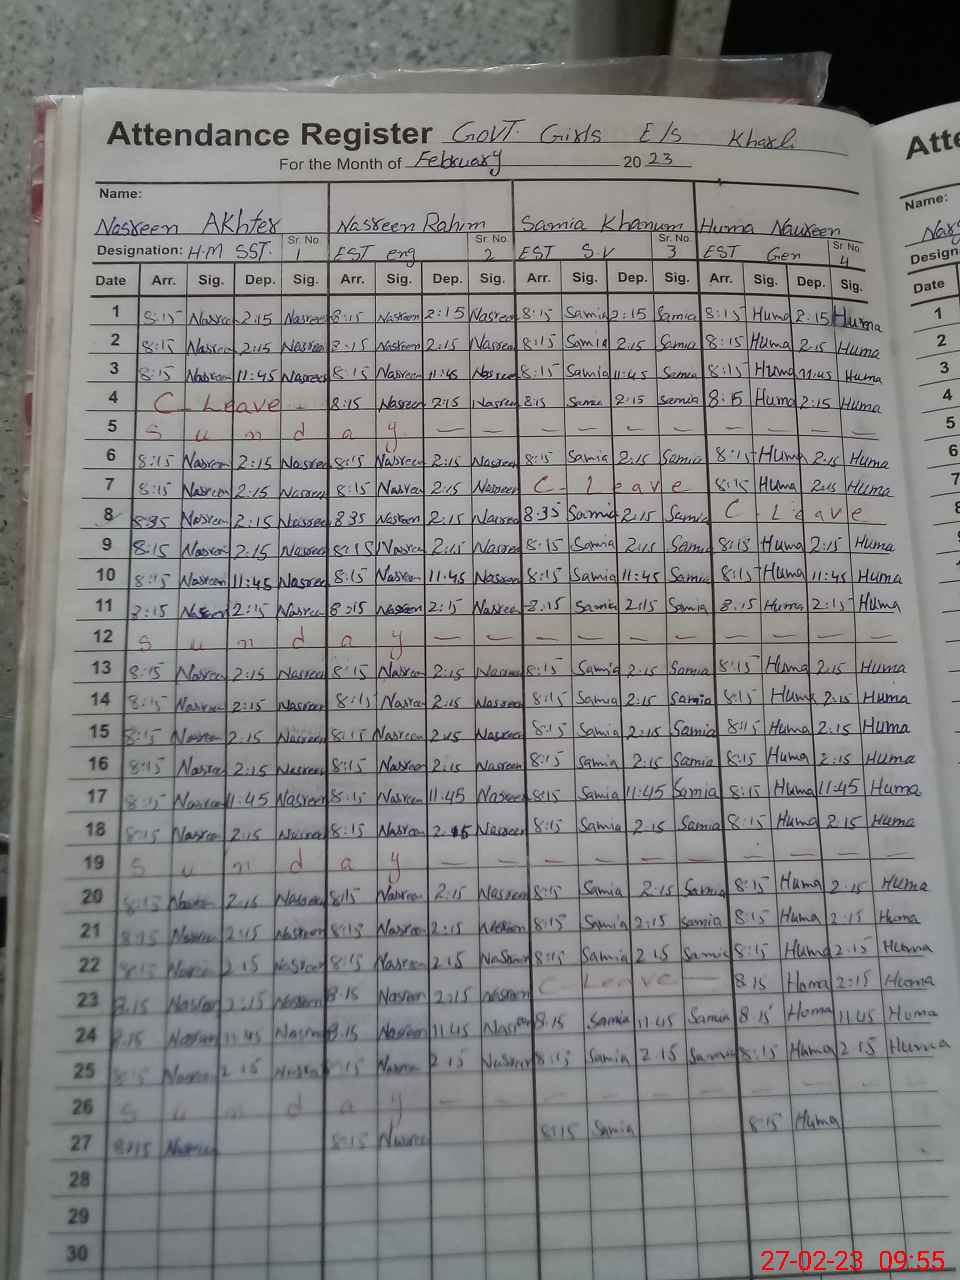 Attendance Register GOVT. Girls E/S Kharli
For the Month of February 20 23
Name:
Nasreen Akhter Nasreen Rahim Samia Khanum Huma Naureen
Designation: H.M SST. Sr. No. 1 EST eng Sr. No. 2 EST S.V Sr. No. 3 EST Gen Sr. No. 4
Date Arr. Sig. Dep. Sig. Arr. Sig. Dep. Sig. Arr. Sig. Dep. Sig. Arr. Sig. Dep. Sig.
1 8:15 Nasreen 2:15 Nasreen 8:15 Nasreen 2:15 Nasreen 8:15 Samia 2:15 Samia 8:15 Huma 2:15 Huma
2 8:15 Nasreen 2:15 Nasreen 8:15 Nasreen 2:15 Nasreen 8:15 Samia 2:15 Samia 8:15 Huma 2:15 Huma
3 8:15 Nasreen 11:45 Nasreen 8:15 Nasreen 11:45 Nasreen 8:15 Samia 11:45 Samia 8:15 Huma 11:45 Huma
4 C - Leave - 8:15 Nasreen 2:15 Nasreen 8:15 Samia 2:15 Samia 8:15 Huma 2:15 Huma
5 S u n d a y — — — — — — — — — —
6 8:15 Nasreen 2:15 Nasreen 8:15 Nasreen 2:15 Nasreen 8:15 Samia 2:15 Samia 8:15 Huma 2:15 Huma
7 8:15 Nasreen 2:15 Nasreen 8:15 Nasreen 2:15 Nasreen C - Leave 8:15 Huma 2:15 Huma
8 8:35 Nasreen 2:15 Nasreen 8:35 Nasreen 2:15 Nasreen 8:35 Samia 2:15 Samia C - Leave
9 8:15 Nasreen 2:15 Nasreen 8:15 Nasreen 2:15 Nasreen 8:15 Samia 2:15 Samia 8:15 Huma 2:15 Huma
10 8:15 Nasreen 11:45 Nasreen 8:15 Nasreen 11:45 Nasreen 8:15 Samia 11:45 Samia 8:15 Huma 11:45 Huma
11 8:15 Nasreen 2:15 Nasreen 8:15 Nasreen 2:15 Nasreen 8:15 Samia 2:15 Samia 8:15 Huma 2:15 Huma
12 S u n d a y — — — — — — — — — —
13 8:15 Nasreen 2:15 Nasreen 8:15 Nasreen 2:15 Nasreen 8:15 Samia 2:15 Samia 8:15 Huma 2:15 Huma
14 8:15 Nasreen 2:15 Nasreen 8:15 Nasreen 2:15 Nasreen 8:15 Samia 2:15 Samia 8:15 Huma 2:15 Huma
15 8:15 Nasreen 2:15 Nasreen 8:15 Nasreen 2:15 Nasreen 8:15 Samia 2:15 Samia 8:15 Huma 2:15 Huma
16 8:15 Nasreen 2:15 Nasreen 8:15 Nasreen 2:15 Nasreen 8:15 Samia 2:15 Samia 8:15 Huma 2:15 Huma
17 8:15 Nasreen 11:45 Nasreen 8:15 Nasreen 11:45 Nasreen 8:15 Samia 11:45 Samia 8:15 Huma 11:45 Huma
18 8:15 Nasreen 2:15 Nasreen 8:15 Nasreen 2:15 Nasreen 8:15 Samia 2:15 Samia 8:15 Huma 2:15 Huma
19 S u n d a y — — — — — — — — — —
20 8:15 Nasreen 2:15 Nasreen 8:15 Nasreen 2:15 Nasreen 8:15 Samia 2:15 Samia 8:15 Huma 2:15 Huma
21 8:15 Nasreen 2:15 Nasreen 8:15 Nasreen 2:15 Nasreen 8:15 Samia 2:15 Samia 8:15 Huma 2:15 Huma
22 8:15 Nasreen 2:15 Nasreen 8:15 Nasreen 2:15 Nasreen 8:15 Samia 2:15 Samia 8:15 Huma 2:15 Huma
23 8:15 Nasreen 2:15 Nasreen 8:15 Nasreen 2:15 Nasreen C - Leave — 8:15 Huma 2:15 Huma
24 8:15 Nasreen 11:45 Nasreen 8:15 Nasreen 11:45 Nasreen 8:15 Samia 11:45 Samia 8:15 Huma 11:45 Huma
25 8:15 Nasreen 2:15 Nasreen 8:15 Nasreen 2:15 Nasreen 8:15 Samia 2:15 Samia 8:15 Huma 2:15 Huma
26 S u n d a y — — — — — — — — —
27 8:15 Nasreen 8:15 Nasreen 8:15 Samia 8:15 Huma
28
29
30
Name:
Date Arr.
1
2
3
4
5
6
7
27-02-23 09:55